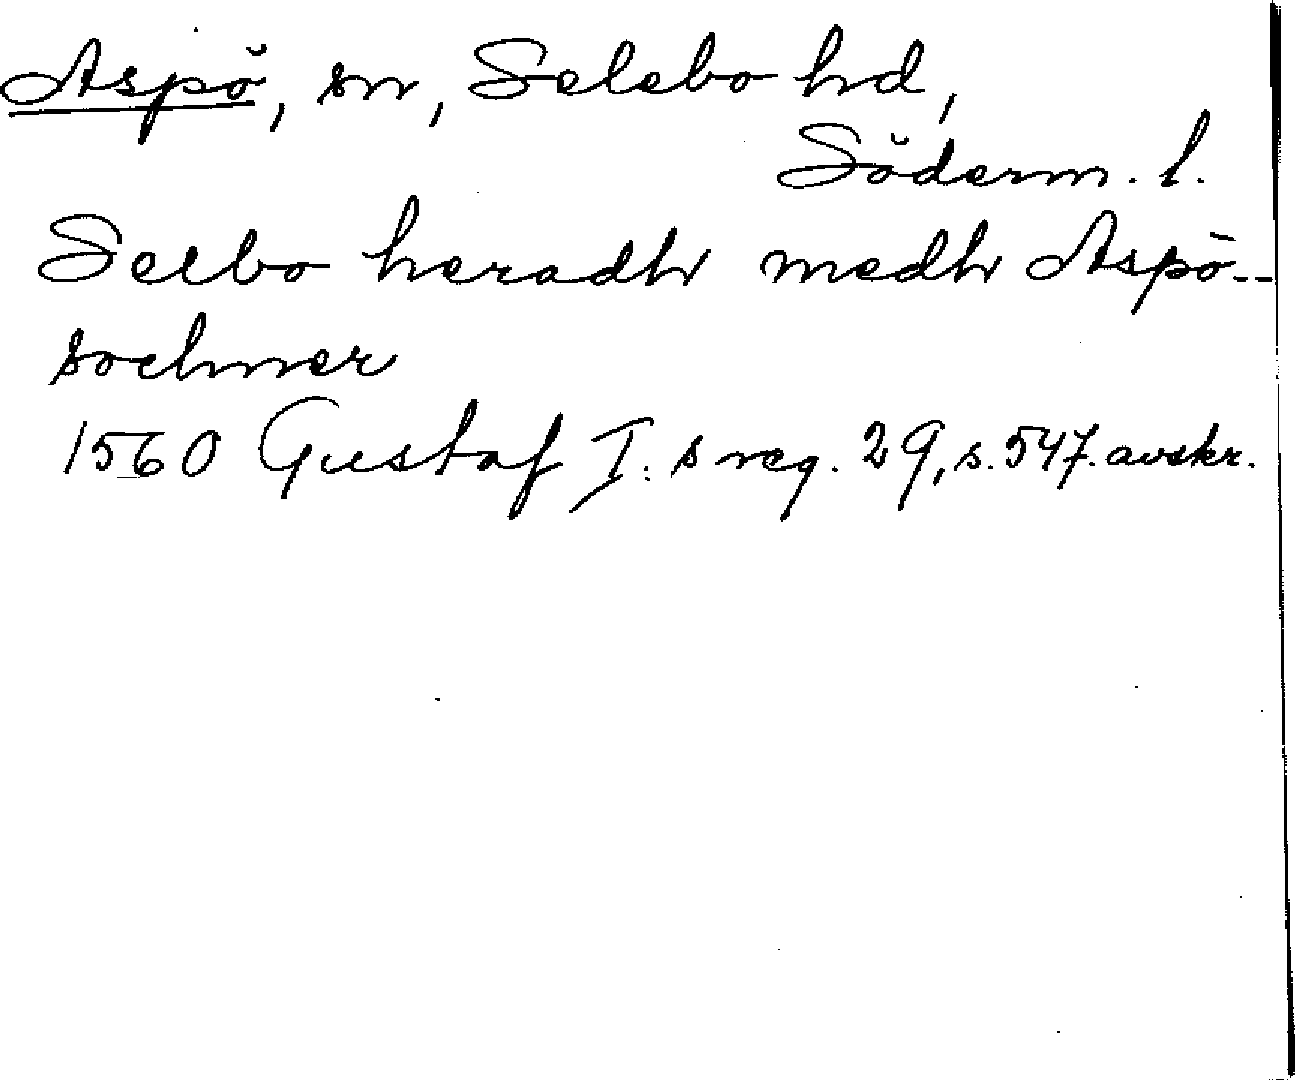 Aspö, sn, Selebo hd,
Söderm. l.
Selbo heradh medh Aspö--
sochner
1560 Gustaf I:s reg. 29, s. 547. avskr.